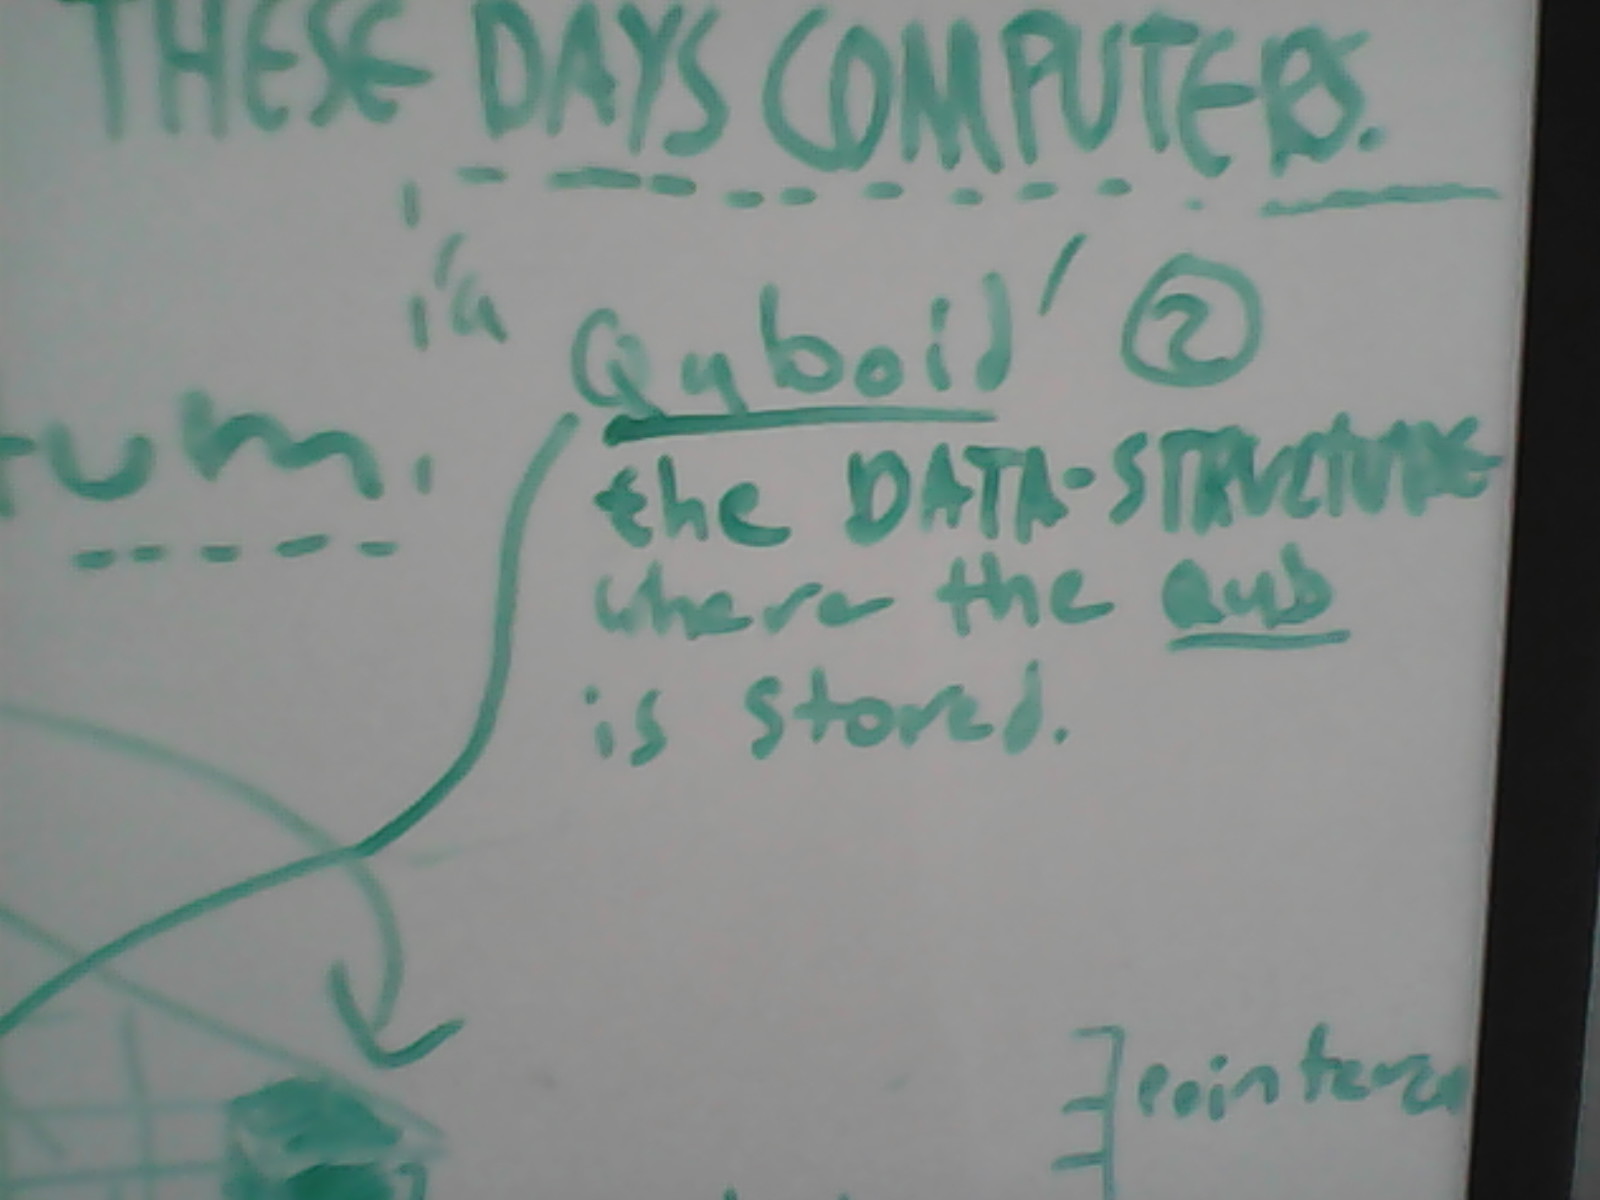 THESE DAYS COMPUTERS.
'a Qyboid' 2
tum.
the DATA-STRUCTURE
where the Qyb
is stored.
pointers